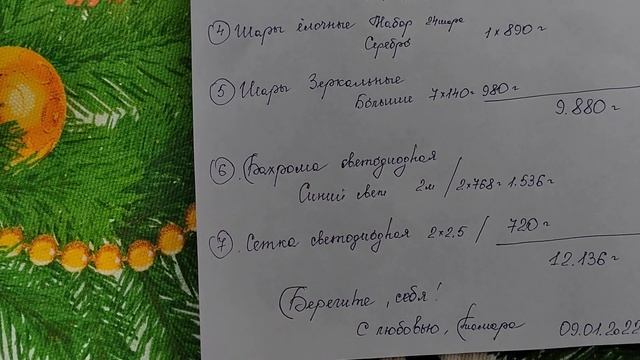 ④ Шары ёлочные Набор 24 шара 1 x 890 г
Серебро
⑤ Шары Зеркальные
Большие 7 x 140 г 980 г
9.880 г
⑥ Бахрома светодиодная
Синий свет 2м / 2 x 768 г 1.536 г
⑦ Сетка светодиодная 2 x 2,5 / 720 г
12.136 г
Берегите, себя!
С любовью, Тамара 09.01.2022